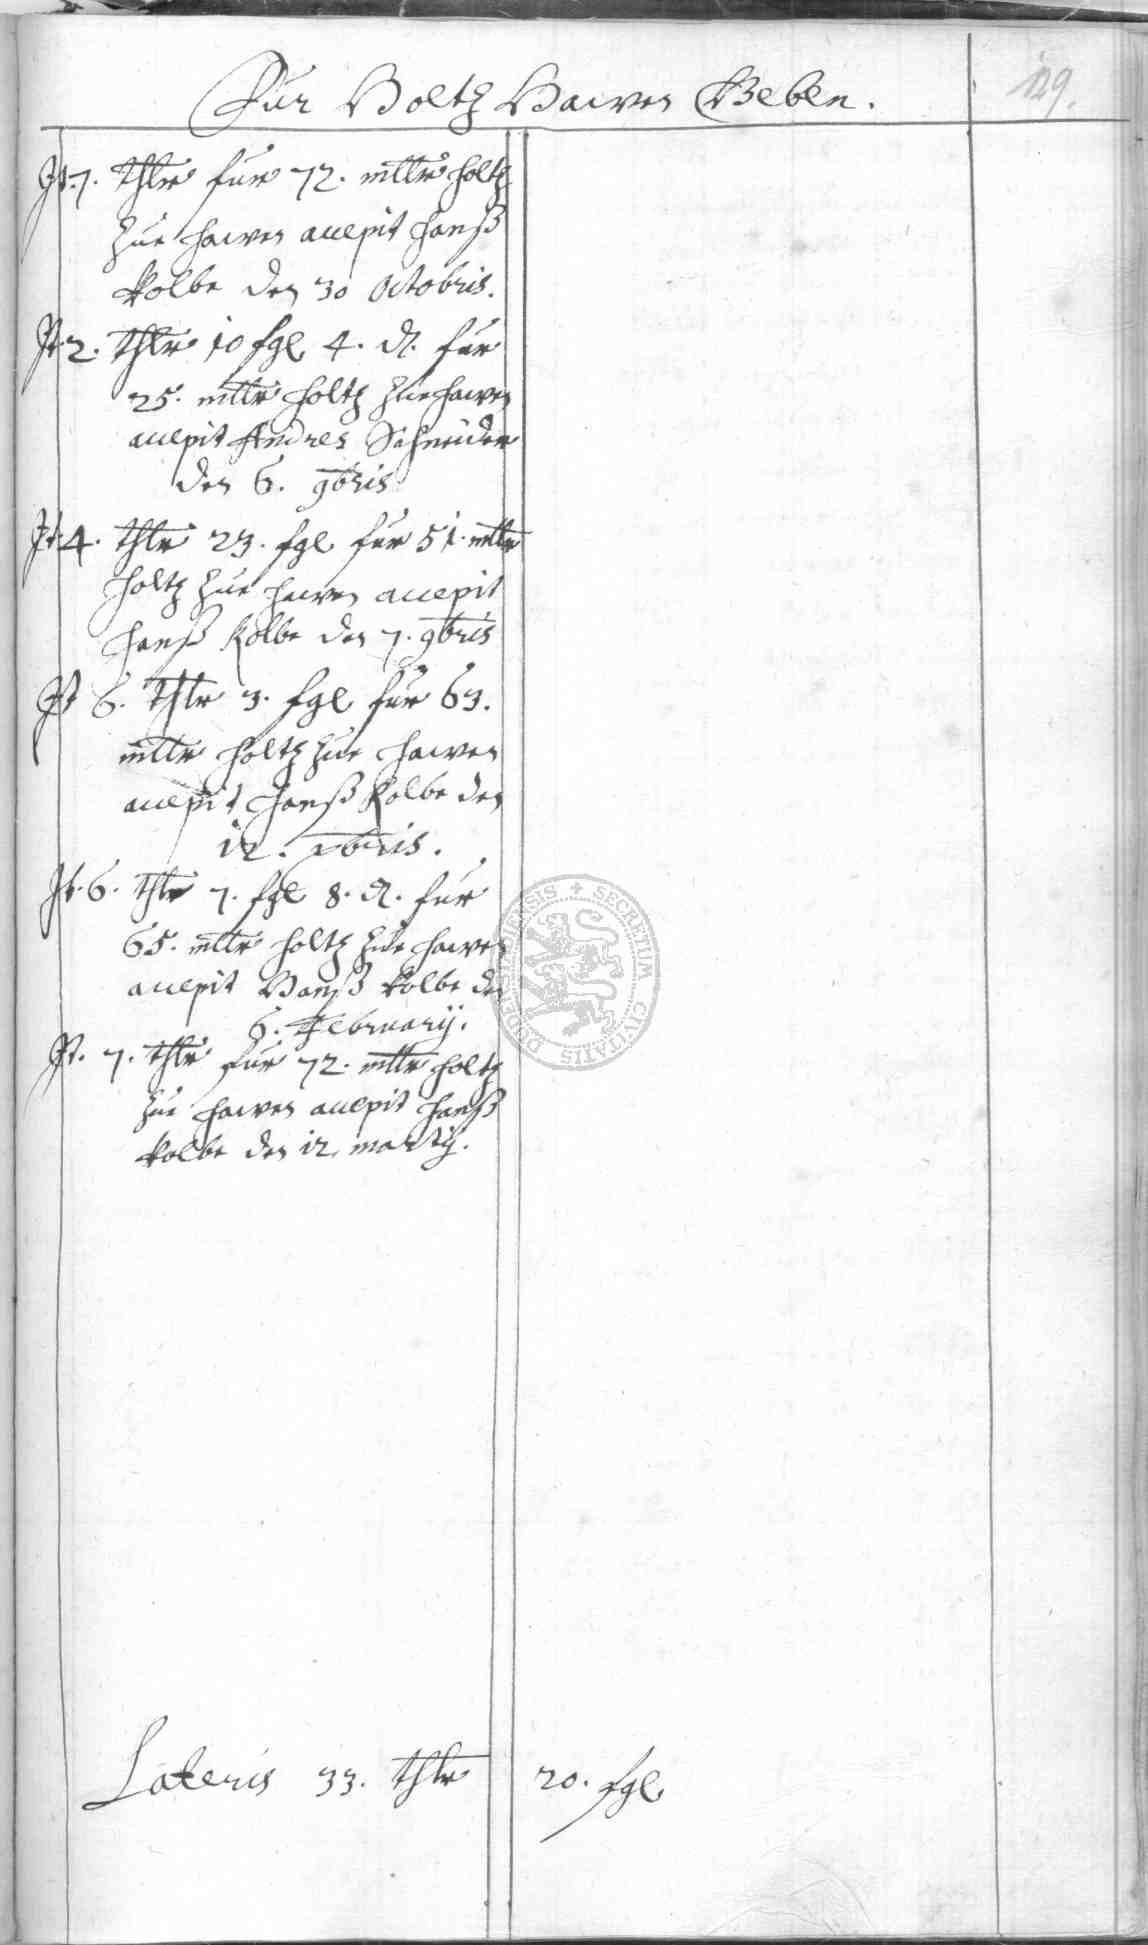 Fur Holtz Hawen Geben.
129.
It. 7. thlr fur 72. mltr holtz
zue hawen accepit Hanß
Kolbe den 30 Octobris.
It. 2. thlr 10 sgl 4. d. fur
25. mltr holtz zue hawen
accepit Andres Schneider
den 6. 9bris
It. 4. thlr 23. sgl fur 51. mltr
holtz zue hawen accepit
Hanß Kolbe den 7. 9bris
It 6. thlr 3. sgl fur 63.
mltr holtz zue hawen
accepit Hanß Kolbe den
12. xbris.
It. 6. thlr 7. sgl 8. d. fur
65. mltr holtz zue hawen
accepit Hanß Kolbe den
6. February.
It. 7. thlr fur 72. mltr holtz
zue hawen accepit Hanß
Kolbe den 12. marty.
SECRETUM CIVITATIS DUDERSTADIENSIS
Lateris 33. thlr 20. sgl